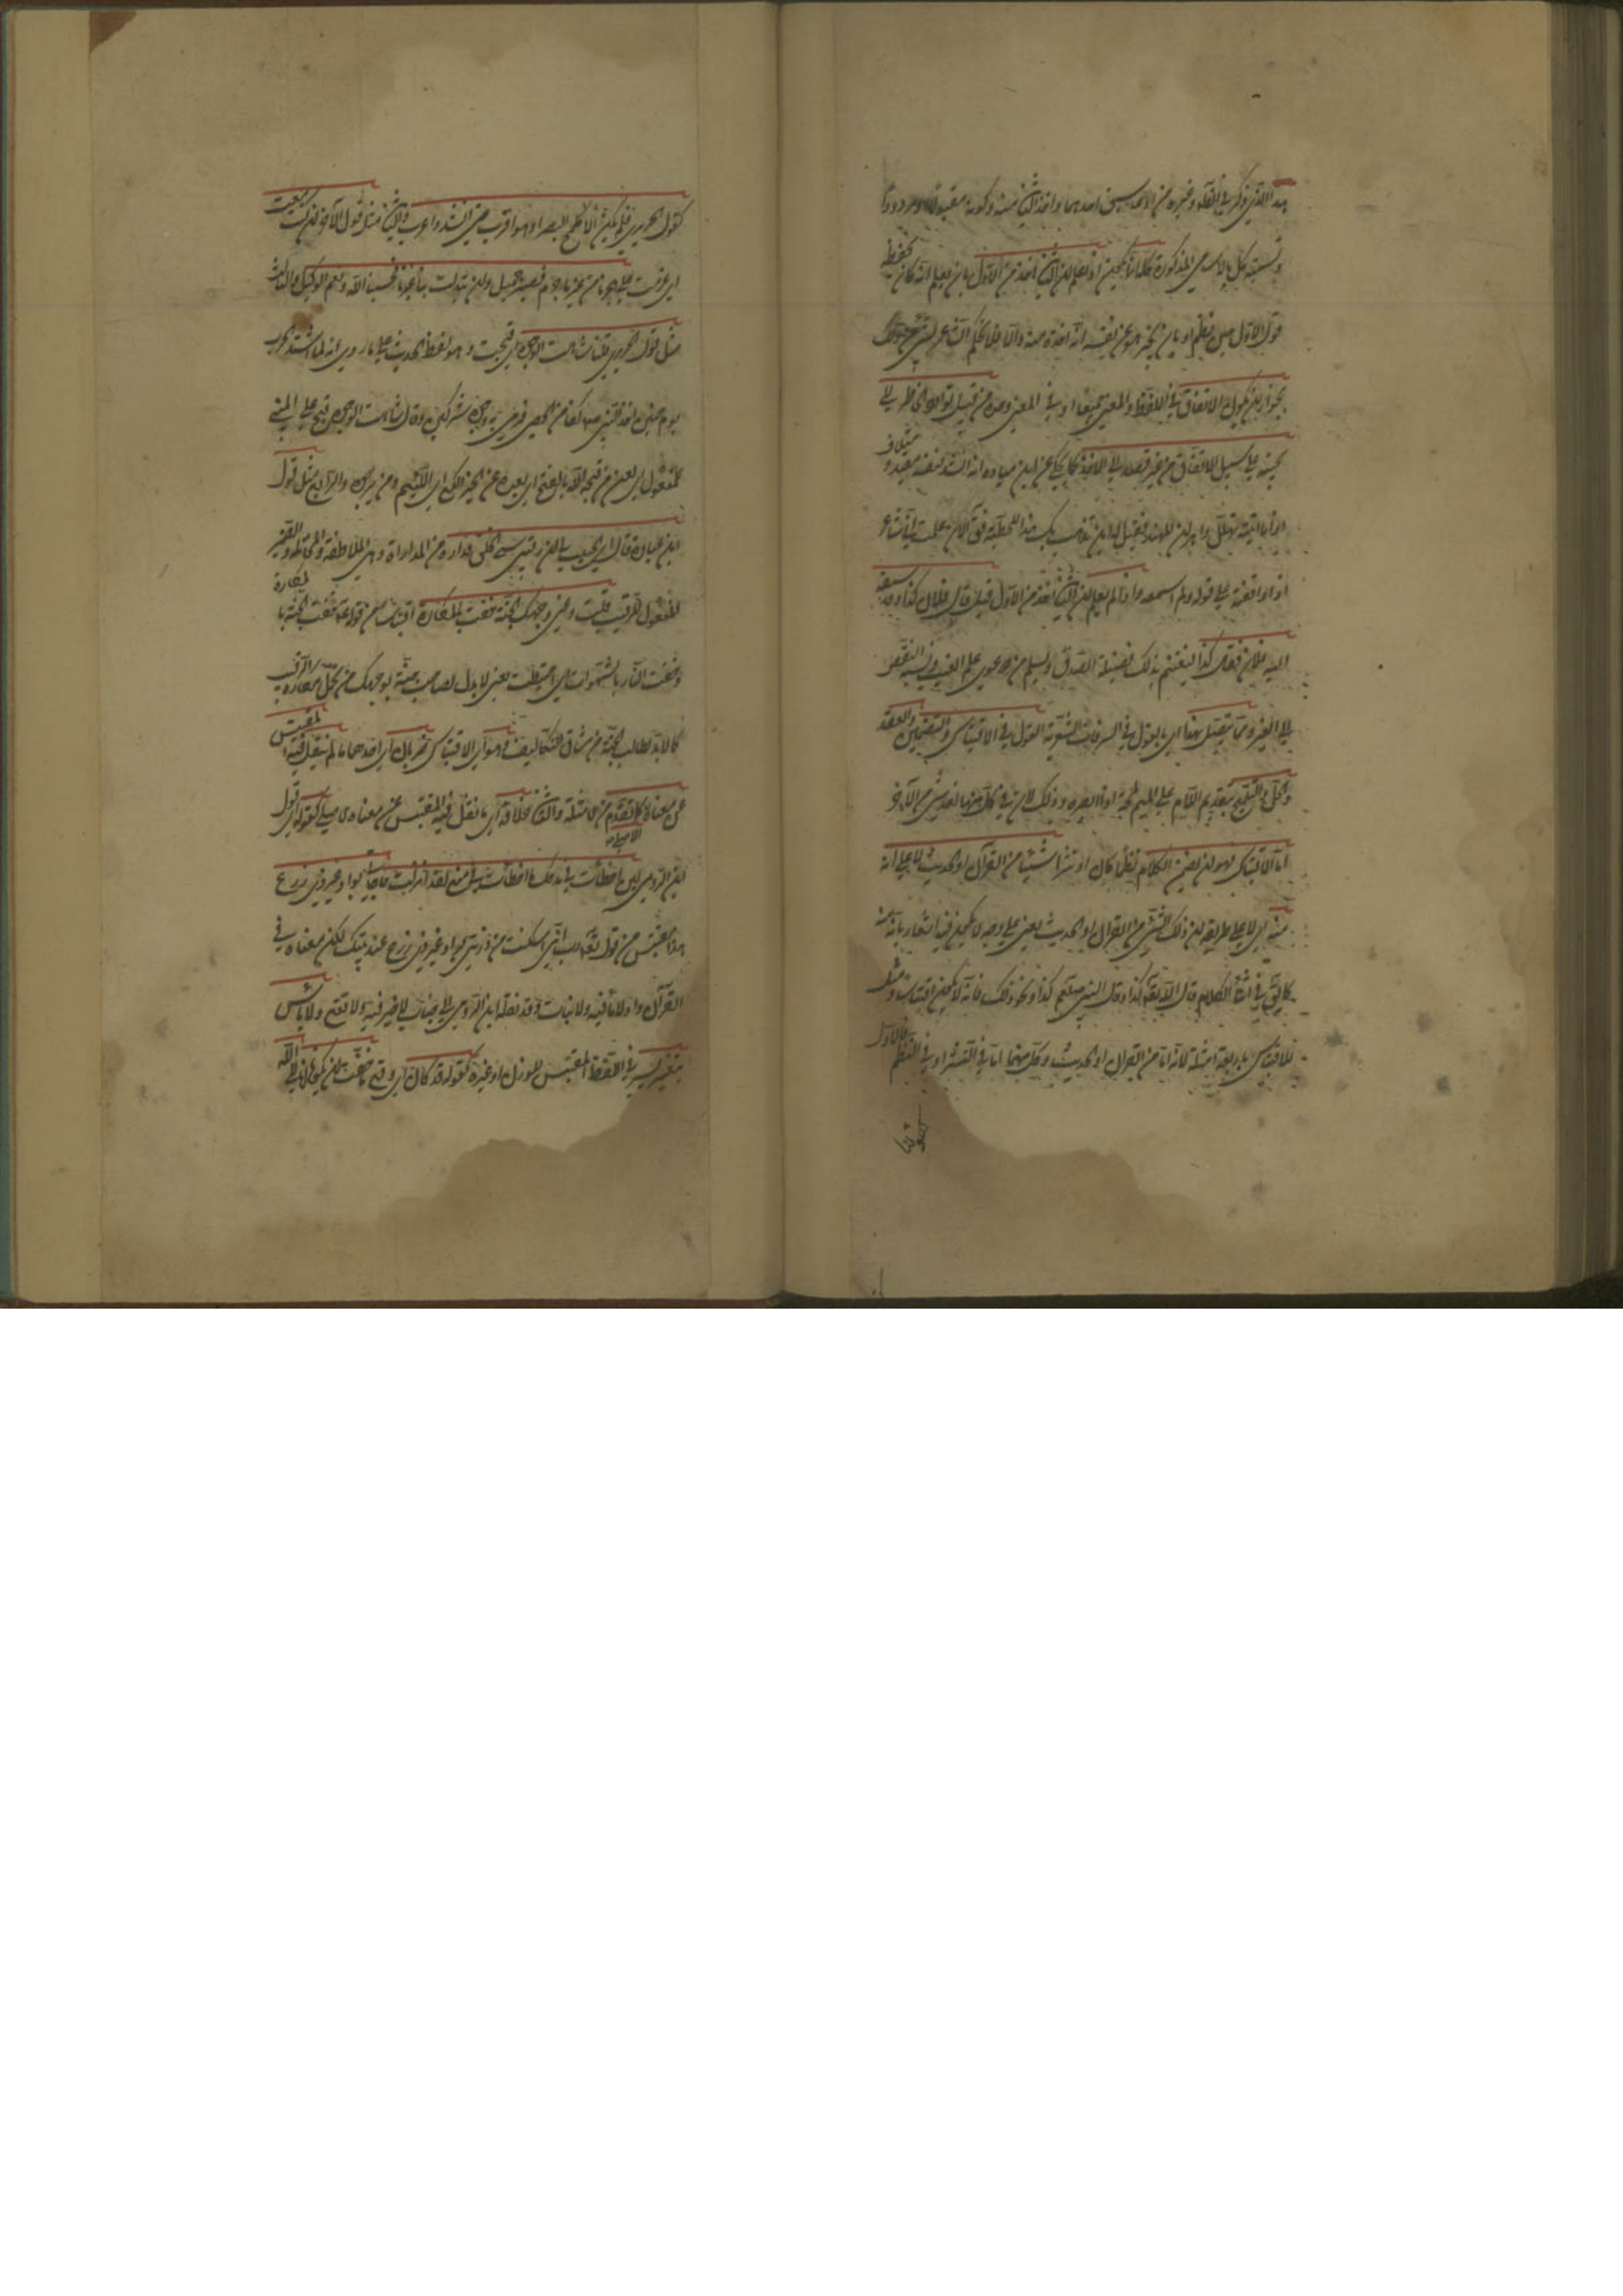 هذا الذي ذكر في الظاهر وغيره من ادعاء سبق احدهما واخذ الثاني منه وكونه مقبولا او مردودا
وتسمية كل بالاسامي المذكورة كله انما يكون اذا علم ان الثاني اخذ من الاول بان يعلم انه كان يحفظ
قول الاول حين نظم او بان يخبر هو عن نفسه انه اخذه منه والا فلا يحكم
بجواز ان يكون الاتفاق في اللفظ والمعنى جميعا او في المعنى وحده من قبيل توارد الخاطر اي
مجيئه على سبيل الاتفاق من غير قصد الى الاخذ كما يحكى عن ابن ميادة انه انشد لنفسه مفيد ومتلاف
اذا ما اتيته تهلل واهتز اهتزاز المهند فقيل له اين يذهب بك هذا للحطيئة فقال الآن علمت اني شاعر
اذ وافقته على قوله ولم اسمعه واذا لم يعلم ان الثاني اخذ من الاول قيل قال فلان كذا وقد سبقه
اليه فلان فقال كذا ليغتنم بذلك فضيلة الصدق ويسلم من دعوى علم الغيب ونسبة النقص
الى الغير ومما يتصل بهذا اي بالقول في السرقات الشعرية القول في الاقتباس والتضمين والعقد
والحل والتلميح بتقديم اللام على الميم من لمحه اذا ابصره وذلك لان في كل منها اخذ شئ من الآخر
اما الاقتباس فهو ان يضمن الكلام نظما كان او نثرا شيئا من القرآن او الحديث لا على انه
منه اي لا على طريقة ان ذلك الشئ من القرآن او الحديث يعني على وجه لا يكون فيه اشعار بانه منه
كما يقال في اثناء الكلام قال الله تعالى كذا وقال النبي صلعم كذا ونحو ذلك فانه لا يكون اقتباسا ومثل
للاقتباس باربعة امثلة لانه اما من القرآن او الحديث وكل منهما اما في النثر او في النظم فالاول
كقول الحريري فلم يكن الا كلمح البصر او هو اقرب حتى انشد واغرب والثاني مثل قول الآخر ان كنت ازمعت
اي عزمت على هجرنا من غير ما جرم فصبر جميل وان تبدلت بنا غيرنا فحسبنا الله ونعم الوكيل والثالث
مثل قول الحريري قلنا شاهت الوجوه اي قبحت وهو لفظ الحديث على ما روي انه لما اشتد الحرب
يوم حنين اخذ النبي صلعم كفا من الحصى فرمى به وجوه المشركين وقال شاهت الوجوه قبح على المبني
للمفعول اي لعن من قبحه الله بالفتح اي ابعده عن الخير اللكع اي اللئيم ومن يرجوه والرابع مثل قول
ابن عباد قال اي الحبيب لي ان رقيبي سيئ الخلق فداره من المداراة وهي الملاطفة والمخاتلة والضمير
المفعول للرقيب قلت دعني وجهك الجنة حفت بالمكاره اقتباس من قوله عم حفت الجنة بالمكاره
وحفت النار بالشهوات اي احيطت يعني لا بد لطالب جنة وجهك من تحمل مكاره الرقيب
كما لا بد لطالب الجنة من مشاق التكاليف وهو اي الاقتباس ضربان اي احدهما ما لم ينقل فيه المقتبس
عن معناه الاصلي كما تقدم من الامثلة والثاني خلافه اي ما نقل فيه المقتبس عن معناه الاصلي كقوله اي قول
ابن الرومي لئن اخطأت في مدحك ما اخطأت في منعي لقد انزلت حاجاتي بواد غير ذي زرع
هذا مقتبس من قوله تعالى رب اني اسكنت من ذريتي بواد غير ذي زرع عند بيتك لكن معناه في
القرآن واد لا ماء فيه ولا نبات وقد نقله ابن الرومي الى جناب لا خير فيه ولا نفع ولا باس
بتغيير يسير في اللفظ المقتبس للوزن او غيره كقوله قد كان اي وقع ما خفت ان يكونا انا الى الله